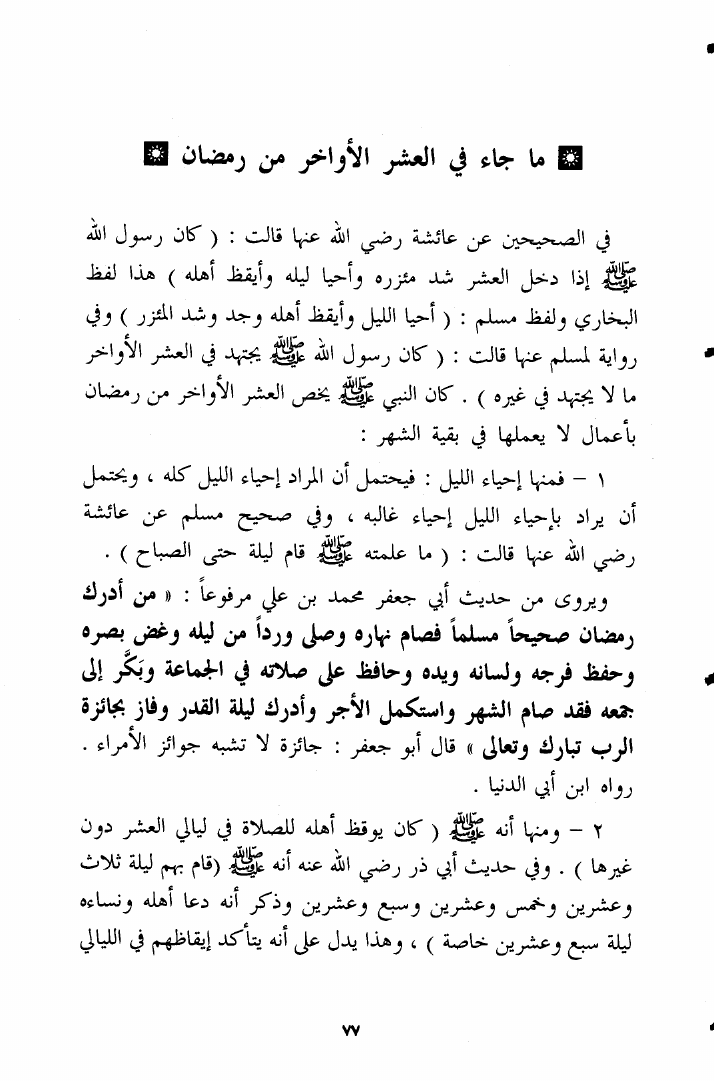 ما جاء في العشر الأواخر من رمضان
في الصحيحين عن عائشة رضي الله عنها قالت : ( كان رسول الله
ﷺ إذا دخل العشر شد مئزره وأحيا ليله وأيقظ أهله ) هذا لفظ
البخاري ولفظ مسلم : ( أحيا الليل وأيقظ أهله وجد وشد المئزر ) وفي
رواية لمسلم عنها قالت : ( كان رسول الله ﷺ يجتهد في العشر الأواخر
ما لا يجتهد في غيره ) . كان النبي ﷺ يخص العشر الأواخر من رمضان
بأعمال لا يعملها في بقية الشهر :
١ – فمنها إحياء الليل : فيحتمل أن المراد إحياء الليل كله ، ويحتمل
أن يراد بإحياء الليل إحياء غالبه ، وفي صحيح مسلم عن عائشة
رضي الله عنها قالت : ( ما علمته ﷺ قام ليلة حتى الصباح ) .
ويروى من حديث أبي جعفر محمد بن علي مرفوعاً : « من أدرك
رمضان صحيحاً مسلماً فصام نهاره وصلى ورداً من ليله وغض بصره
وحفظ فرجه ولسانه ويده وحافظ على صلاته في الجماعة وبَكَّر إلى
جمعه فقد صام الشهر واستكمل الأجر وأدرك ليلة القدر وفاز بجائزة
الرب تبارك وتعالى » قال أبو جعفر : جائزة لا تشبه جوائز الأمراء .
رواه ابن أبي الدنيا .
٢ – ومنها أنه ﷺ ( كان يوقظ أهله للصلاة في ليالي العشر دون
غيرها ) . وفي حديث أبي ذر رضي الله عنه أنه ﷺ (قام بهم ليلة ثلاث
وعشرين وخمس وعشرين وسبع وعشرين وذكر أنه دعا أهله ونساءه
ليلة سبع وعشرين خاصة ) ، وهذا يدل على أنه يتأكد إيقاظهم في الليالي
٧٧